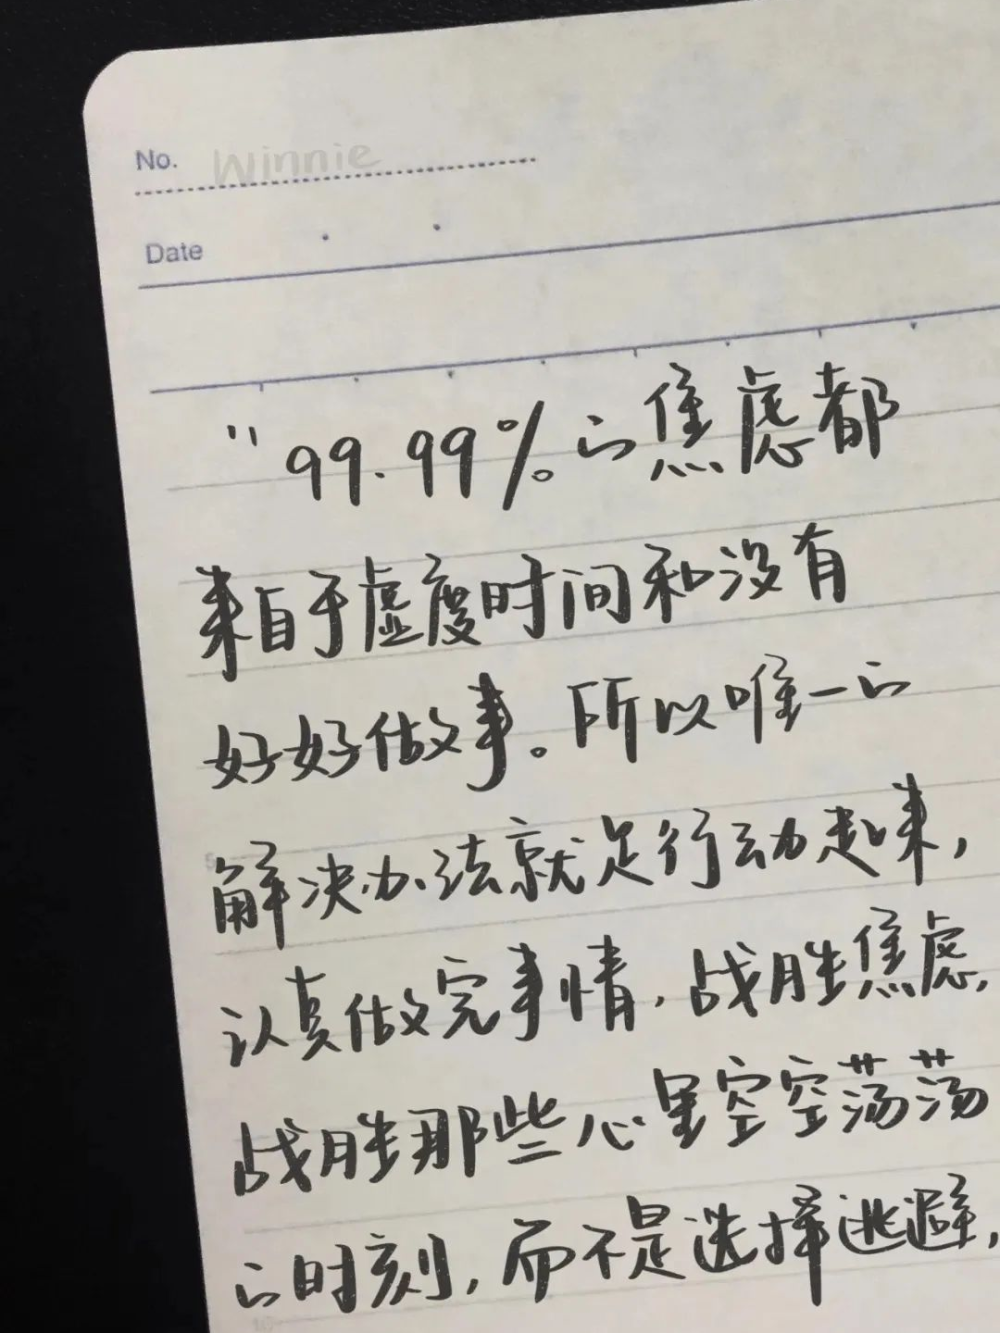 No. Winnie
Date
"99.99%的焦虑都
来自于虚度时间和没有
好好做事。所以唯一的
解决办法就是行动起来,
认真做完事情,战胜焦虑,
战胜那些心里空空荡荡
的时刻,而不是选择逃避,